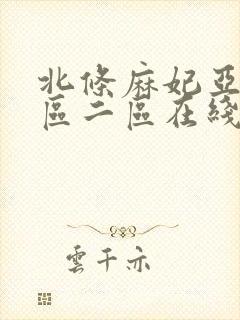 北條麻妃亞
區二區在綫
雲千亦